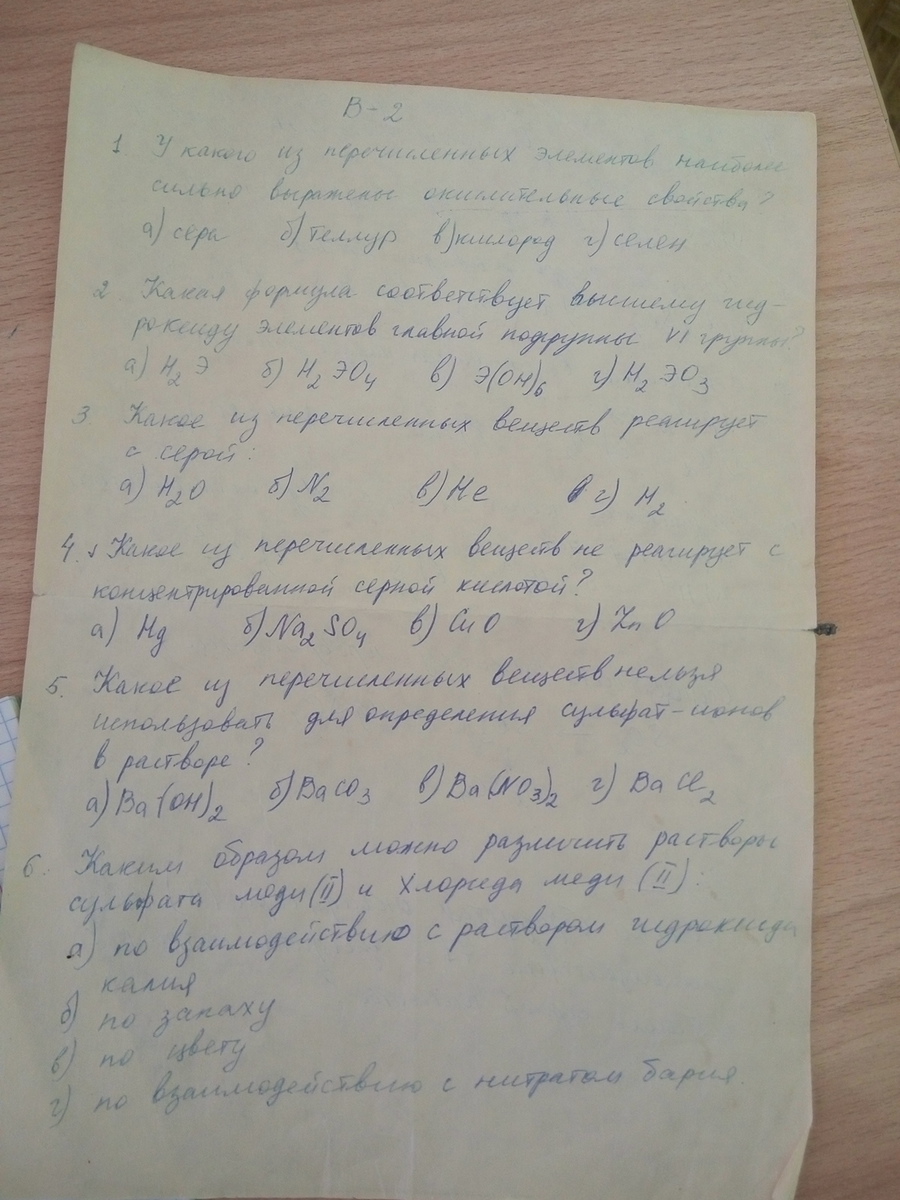 В-2
1. У какого из перечисленных элементов наиболее
сильно выражены окислительные свойства?
а) сера б) теллур в) кислород г) селен
2 Какая формула соответствует высшему гид-
роксиду элементов главной подгруппы VI группы?
а) H2Э б) H2ЭO4 в) Э(OH)6 г) H2ЭO3
3 Какое из перечисленных веществ реагирует
с серой:
а) H2O б) N2 в) He г) H2
4. Какое из перечисленных веществ не реагирует с
концентрированной серной кислотой?
а) Hg б) Na2SO4 в) CuO г) ZnO
5. Какое из перечисленных веществ нельзя
использовать для определения сульфат-ионов
в растворе?
а) Ba(OH)2 б) BaCO3 в) Ba(NO3)2 г) BaCl2
6. Каким образом можно различить растворы
сульфата меди (II) и хлорида меди (II):
а) по взаимодействию с раствором гидроксида
калия
б) по запаху
в) по цвету
г) по взаимодействию с нитратом бария